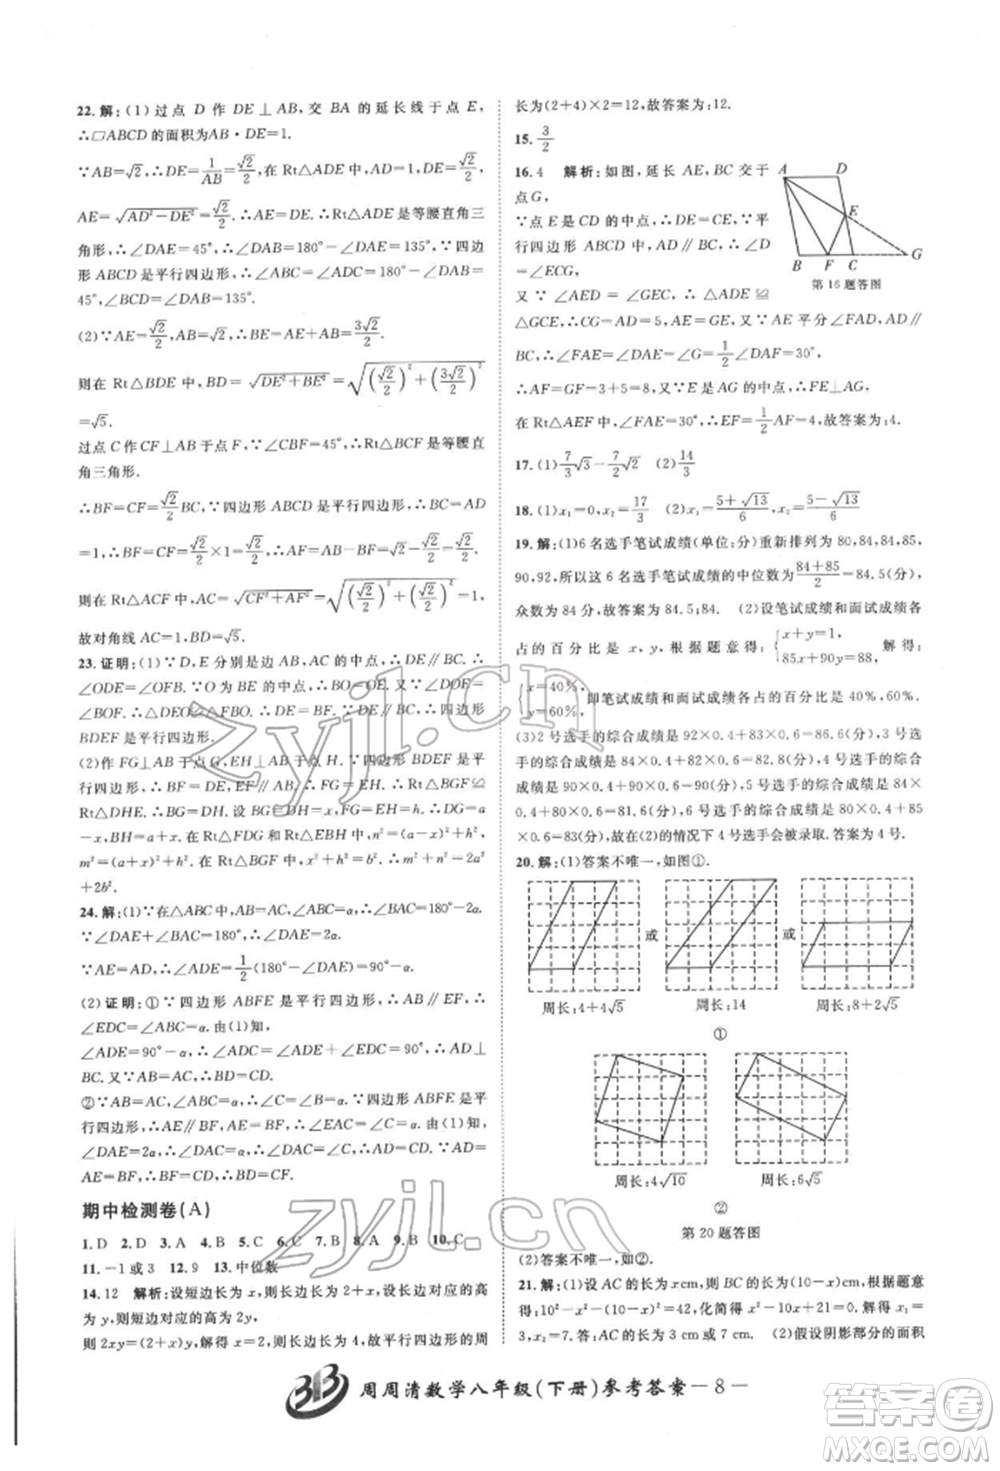 22.解:(1)过点 D 作 DE⊥AB,交 BA 的延长线于点 E,
∴▱ABCD 的面积为AB·DE=1.
∵AB=√2,∴DE=1/AB=√2/2.∵在 Rt△ADE 中,
AE=√(AD²-DE²)=√2/2,∴Rt△ADE 是等腰直角三
角形,∴∠DAE=45°,∴∠DAB=135°.∵四边形
ABCD 是平行四边形,∴∠ABC=∠BAD=∠DAE=
45°,∠ADC=∠DAB=135°.
(2)∵AE=√2/2,AB=√2,∴BE=AE+AB=3√2/2,
则在 Rt△BDE 中,BD=√(DE²+BE²)=√((√2/2)²+(3√2/2)²)
=√5.
过点 C 作 CF⊥AB 于点 F,∵∠CBF=45°,∴Rt△BCF 是等腰直
角三角形.
∴BF=CF=√2/2 BC,∵四边形 ABCD 是平行四边形,∴BC=AD
=1,∴BF=CF=√2/2×1=√2/2,∴AF=AB-BF=√2-√2/2=√2/2.
∴在 Rt△ACF 中,AC=√(CF²+AF²)=√((√2/2)²+(√2/2)²)=1.
故对角线 AC=1,BD=√5.
23.证明:(1)∵D,E 分别是边 AC,AB 的中点,∴DE∥BC.∴
∠ODE=∠OFB,∠OED=∠OBF.∵BO=OE,∴∠DOE=
∠BOF.∴△DEO≌△FBO.∴DE=BF.∵DE∥BF,∴四边形
BDEF 是平行四边形.
(2)作 FG⊥AB 于点G,EH⊥AC于点H.∵四边形 BDEF 是平行四边形,
∴Rt△BGF≌
Rt△DHE.∴BG=DH.
-x,BH=a+x.在 Rt△FDG 和 Rt△EBH 中,n²=(a-x)²+h²,
m²=(a+x)²+h².在 Rt△BGF 中,b²=x²+h².∴m²+n²=2a²
+2b².
24.解:(1)∵在△ABC 中,∠B=∠ACB=α,∴∠BAC=180°-2α,
∴∠DAE=∠BAC=180°-2α.
∴∠ADE=1/2(180°-∠DAE)=90°-α.
(2)证明:①∵四边形 ABFE 是平行四边形,∴AB∥EF.∴
∠EDC=∠ABC=α.由(1)知,
∠ADE=90°-α,∴∠ADC=∠ADE+∠EDC=90°.∴AD⊥
BC.∵AB=AC,∴BD=CD.
②∵AB=AC,∠ABC=α,∴∠C=α.∵四边形 ABFE 是平行四边形,
∴AE∥BF.∴∠EAC=∠C=α.由(1)知,
∠DAE=180°-2α,∴∠DAC=
.∴AD=CD.∵AD=AE=BF,∴BF=CD.∴BD=CF.
期中检测卷(A)
1.D 2.D 3.A 4.B 5.C 6.C 7.B 8.A 9.B 10.C
11.-1或3 12.9 13.中位数
14.12 解析:设短边长为 x,则长边长为 2+x,设长边对应的高
为 y,则短边对应的高为 2y,
则 2xy=(2+x)y,解得 x=2,则长边长为 4,故平行四边形的周
长为(2+4)×2=12,故答案为:12.
15.3/2
16.4 解析:如图,延长 AE,BC 交于
点G,
∵点 E 是 CD 的中点,∴DE=CE,∵平
行四边形 ABCD 中,AD∥BC,∴∠D
=∠ECG,
又∵∠AED=∠GEC,∴△ADE≌
△GCE,∴CG=AD=5,AE=GE,又∵AE 平分∠FAD,AD∥
BC,∴∠FAE=∠DAE=∠G=1/2∠DAF=30°,
∴AF=GF=3+5=8,又∵E 是 AG 的中点,∴FE⊥AG,
在 Rt△AEF 中,∠FAE=30°,∴EF=1/2AF=4,故答案为:4.
A D E B F C G
第16题答图
17.(1)7/3√3-7/2√2 (2)14/3
18.(1)x₁=0,x₂=17/3 (2)x₁=(5+√13)/6,x₂=(5-√13)/6
19.解:(1)6名选手笔试成绩(单位:分)重新排列为80,84,84,85,
90,92,所以这 6 名选手笔试成绩的中位数是(84+85)/2=84.5(分),
众数为 84 分,故答案为 84.5;84. (2)设笔试成绩和面试成绩各
占的百分比是 x,y,根据题意得:{x+y=1, 85x+90y=88, 解得:
{x=40%, y=60%, 即笔试成绩和面试成绩各占的百分比是 40%,60%.
(3)2 号选手的综合成绩是 92×0.4+88×0.6=89.6(分),3 号选手
的综合成绩是 84×0.4+82×0.6=82.8(分),4 号选手的综合
成绩是 90×0.4+90×0.6=90(分),5 号选手的综合成绩是 84×
0.4+80×0.6=81.6(分),6 号选手的综合成绩是 80×0.4+85
×0.6=83(分),故(2)的情况下 4 号选手会被录取.答案为 4 号.
20.解:(1)答案不唯一,如图①.
或 或
周长:4+4√5 周长:14 周长:8+2√5
①
周长:4√10 周长:6√5
②
第20题答图
(2)答案不唯一,如图②.
21.解:(1)设 AC 的长为 x cm,则 BC 的长为(10-x)cm,根据题意
得:10²-x²-(10-x)²=42,化简得:x²-10x+21=0,解得 x₁=
3,x₂=7.答:AC的长为3cm或7cm. (2)假设阴影部分的面积
周周清数学八年级(下册)参考答案 —8—
zyjl.cn
zyjl.cn
答案圈
MXQE.COM